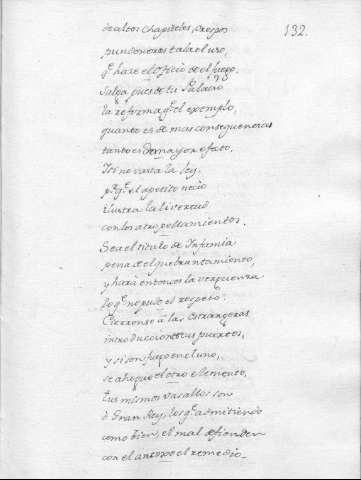 132.
de altos Chapiteles, crespos
pundonores tala el uso,
q.e haze el oficio de el fuego.
Salga pues de tu Palacio
la reforma q.e el exemplo,
quanto es de mas consequencias
tanto es de mayor efeto.
Y si no vasta la ley,
p.r q.e el apetito necio
ilustra la livertad
con los atropellamientos.
Sea el titulo de Infamia
pena de el quebrantamiento,
y hara entonces la verguenza
lo q.e no pudo el respeto.
Cierrense à las estrangeras
introducciones tus puertos,
y si son fuego en el uno,
se ahogue el otro elemento,
tus mismos vasallos son
ò Gran Rey, los q.e admitiendo
como bien, el mal defienden
con el antojo el remedio.